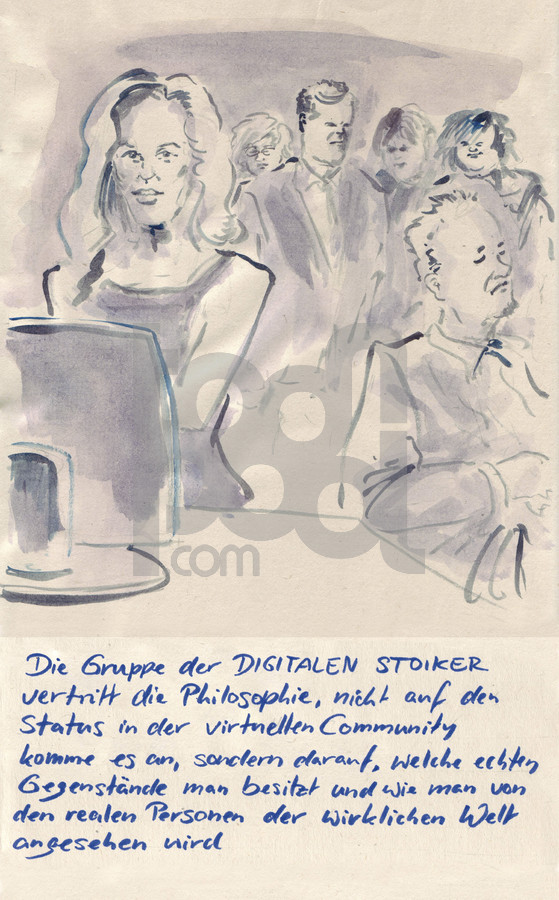 toonpool
.com
Die Gruppe der DIGITALEN STOIKER
vertritt die Philosophie, nicht auf den
Status in der virtuellen Community
komme es an, sondern darauf, welche echten
Gegenstände man besitzt und wie man von
den realen Personen der wirklichen Welt
angesehen wird